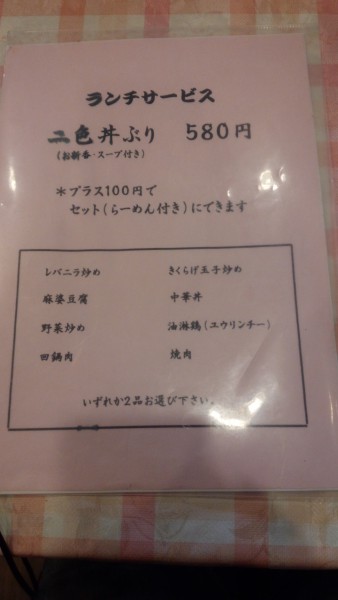 ランチサービス
二色丼ぶり 580円
(お新香・スープ付き)
*プラス100円で
セット(らーめん付き)にできます
レバニラ炒め きくらげ玉子炒め
麻婆豆腐 中華丼
野菜炒め 油淋鶏(ユウリンチー)
回鍋肉 焼肉
いずれか2品お選び下さい。